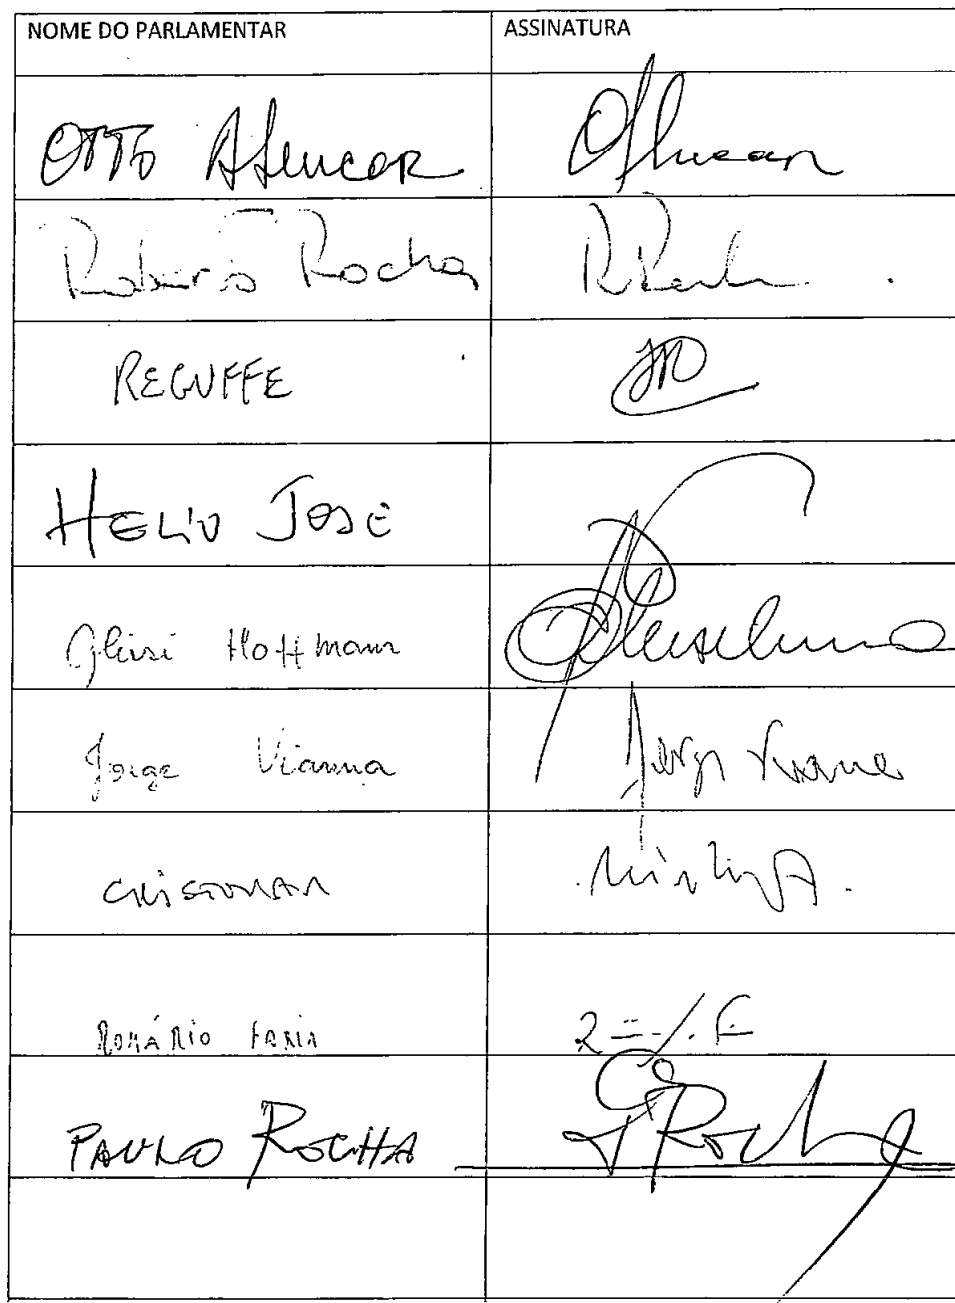 NOME DO PARLAMENTAR ASSINATURA
OTTO Alencar OAlencar
Roberto Rocha RRocha
REGUFFE
HELIO JOSÉ
Gleisi Hoffmann
Jorge Vianna Jorge Viana
CRISTOVAM
ROMÁRIO FARIA
PAULO ROCHA PRocha